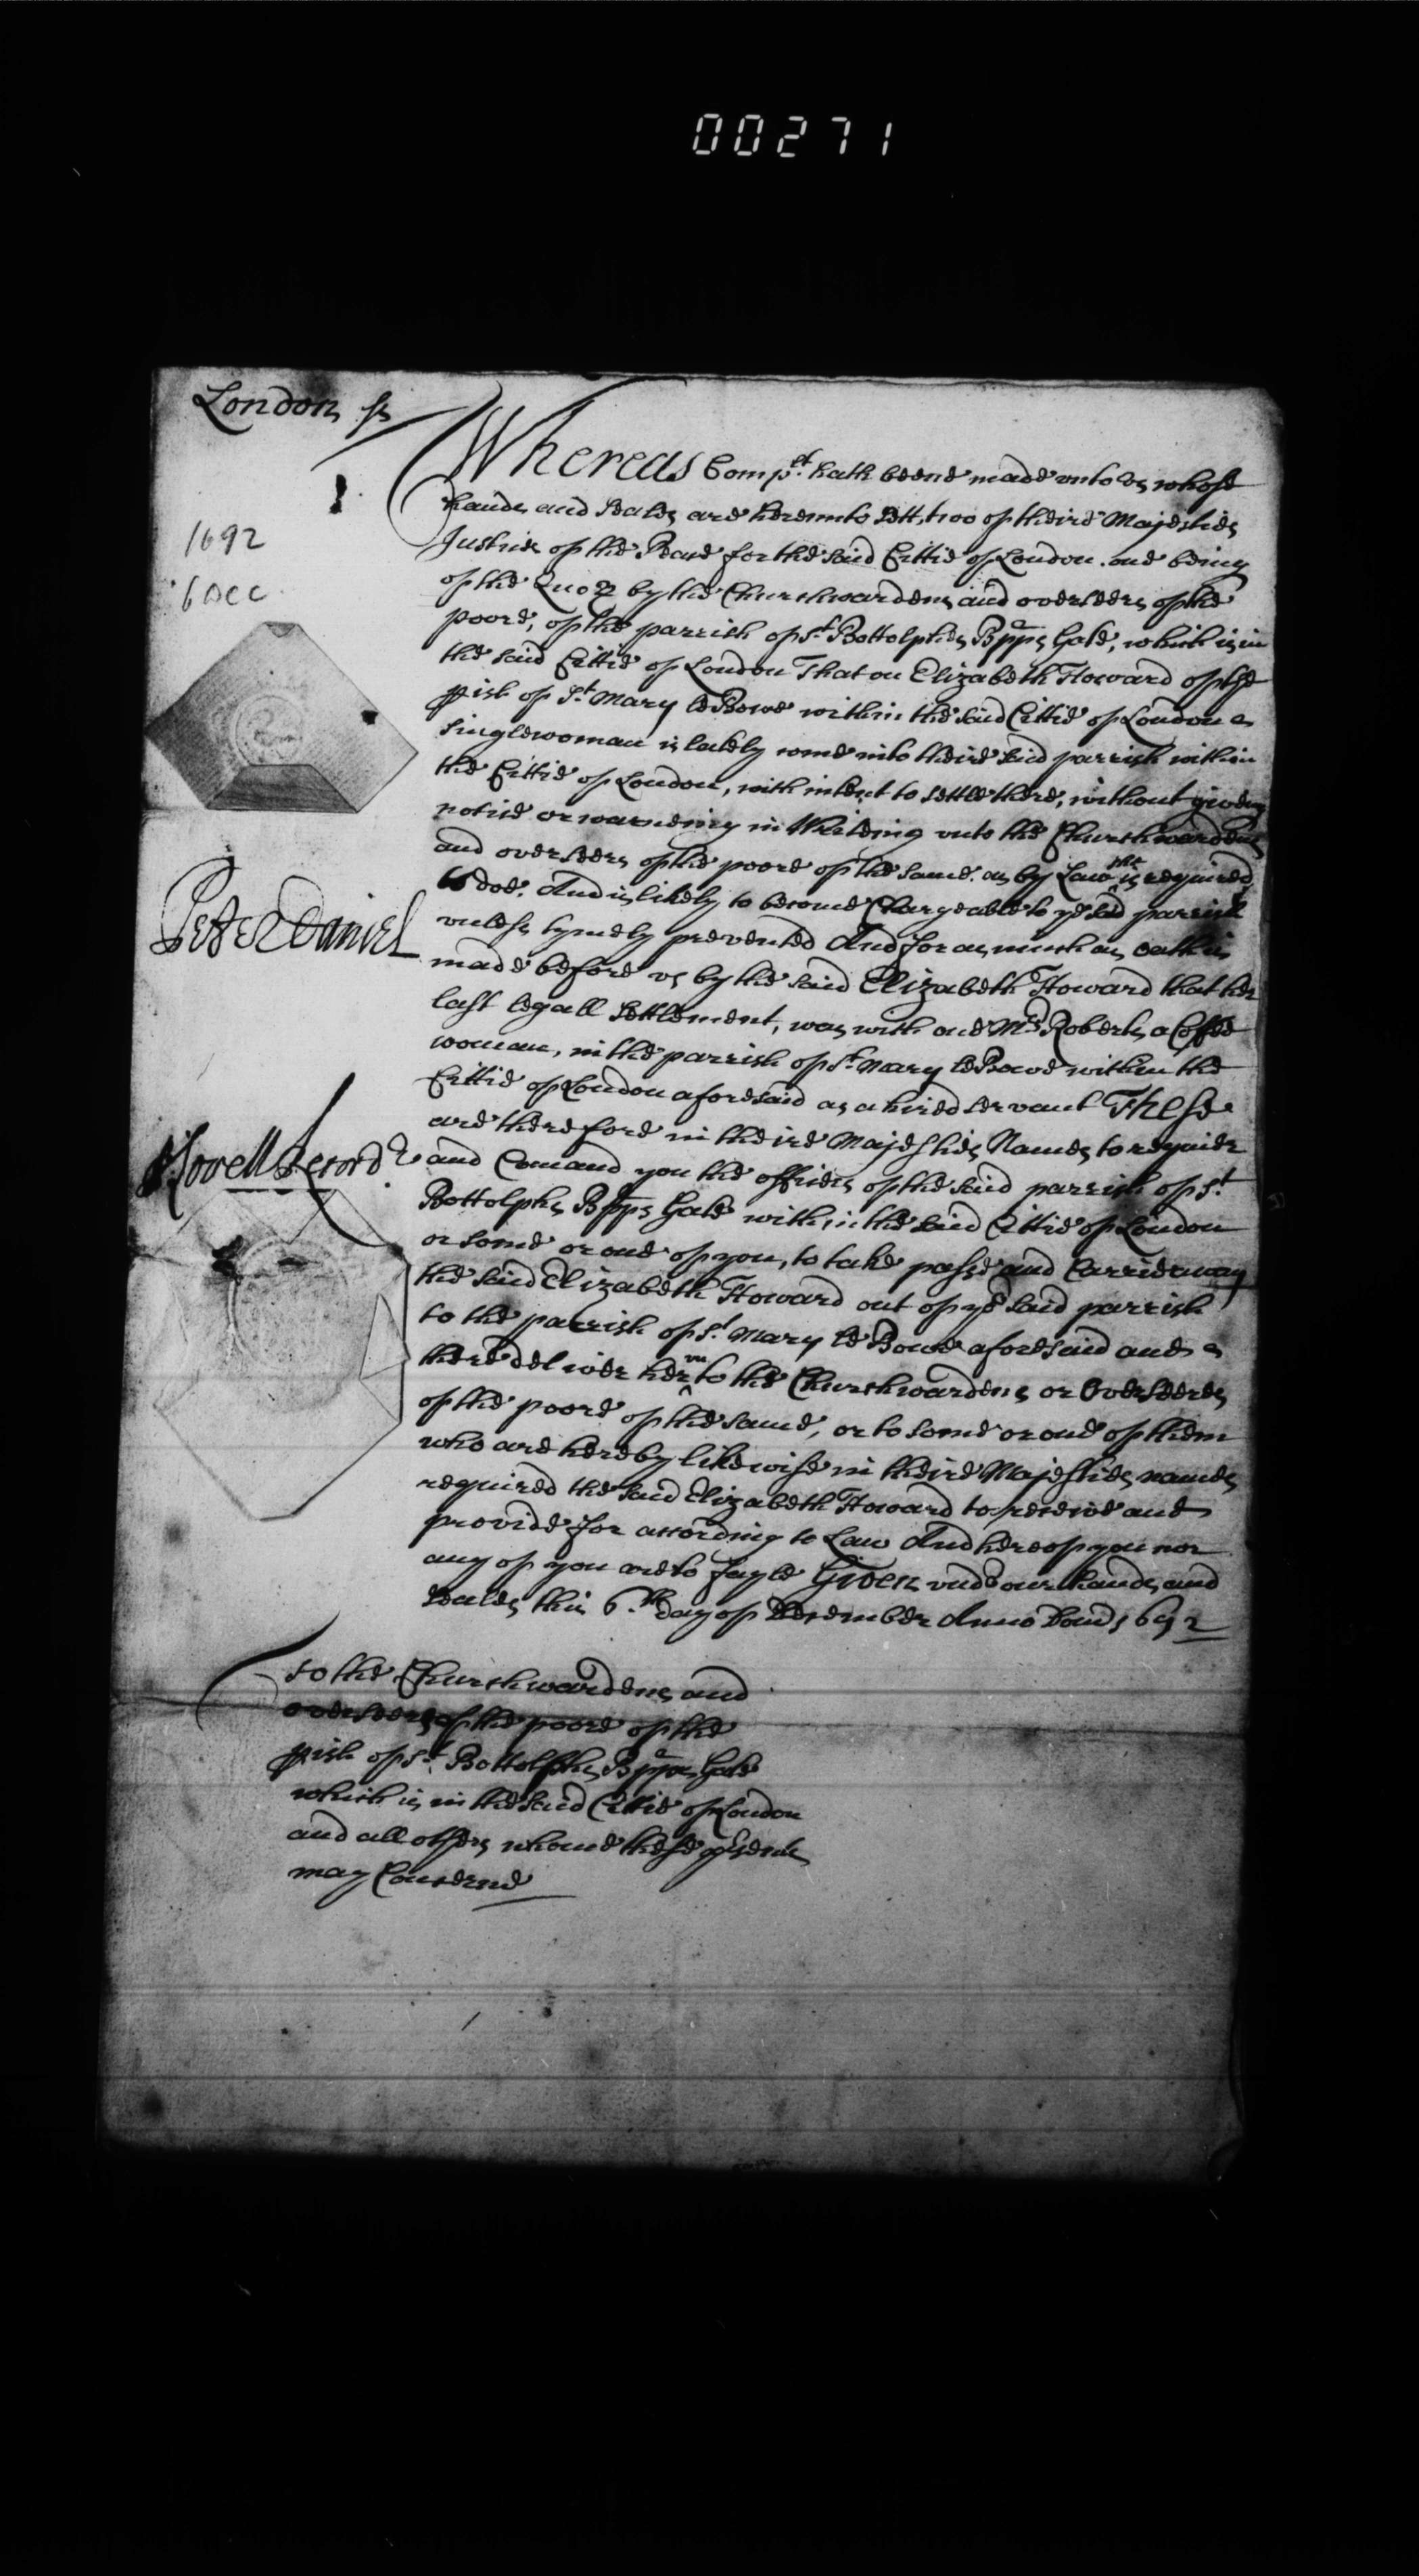 00271
London ss
1692
6 Dec
Whereas Comp.lt hath beene made unto us whose
hands and Seales are hereunto Sett, two of theire Majesties
Justices of the Peace for the said Cittie of London. one being
of the Quor by the Churchwardens and overseers of the
poore, of the parrish of St. Bottolphes Bpps Gate, which is in
the said Cittie of London That on Elizabeth Howard of the
pish of St. Mary le Bowe within the said Cittie of London
singlewoman is lately come into theire said parrish within
the Cittie of London, with intent to settle there, without giveing
notice or warneing in Writeing unto the Churchwardens
and overseers of the poore of the same. as by Law she is required
to doe. And is likely to become Chargeable to ye said parrish
unless tymely prevented And for as much as oath is
made before us by the said Elizabeth Howard that her
last legall settlement, was with one Mrs. Roberts a Coffee
woman, in the parrish of St. Mary le Bowe within the
Cittie of London aforesaid as a hired servant These
are therefore in theire Majesties Names to require
and Comand you the officers of the said parrish of St.
Bottolphes Bpps Gate within the said Cittie of London
or some or one of you, to take passe and Carrie away
the said Elizabeth Howard out of ye said parrish
to the parrish of St. Mary le Bowe aforesaid and
there deliver her unto the Churchwardens or Overseeres
of the poore of the same, or to some or one of them
who are hereby likewise in theire Majesties names
required the said Elizabeth Howard to receive and
provide for according to Law And hereof you nor
any of you are to fayle Given under our hands and
Seales this 6.th day of December Anno Dom 1692
Peter Daniel
S Lovell Record.r
To the Churchwardens and
overseers of the poore of the
pish of St. Bottolphes Bpps Gate
which is in the said Cittie of London
and all others whome these psents
may Concerne